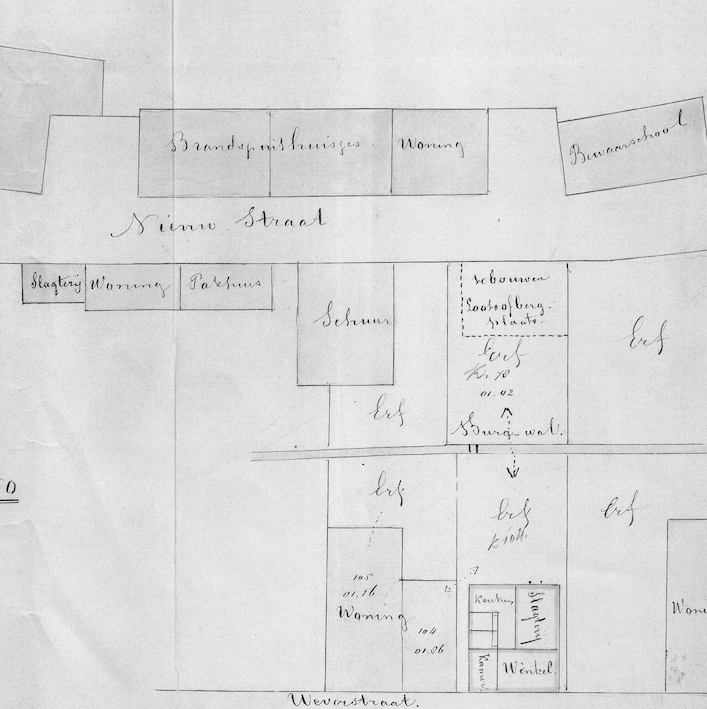 Brandspuithuisjes Woning
Bewaarschool
Nieuw Straat
Slagterij Woning Pakhuis
Schuur
te bouwen
Loots of berg-
plaats.
Erf
Erf
K. 78
01.02
Erf
Burg wal.
Erf
Erf
K 104.
Erf
105
01.16
Woning
104
01.86
Keuken
Slagterij
Kamer
Winkel.
Woni
Weverstraat.